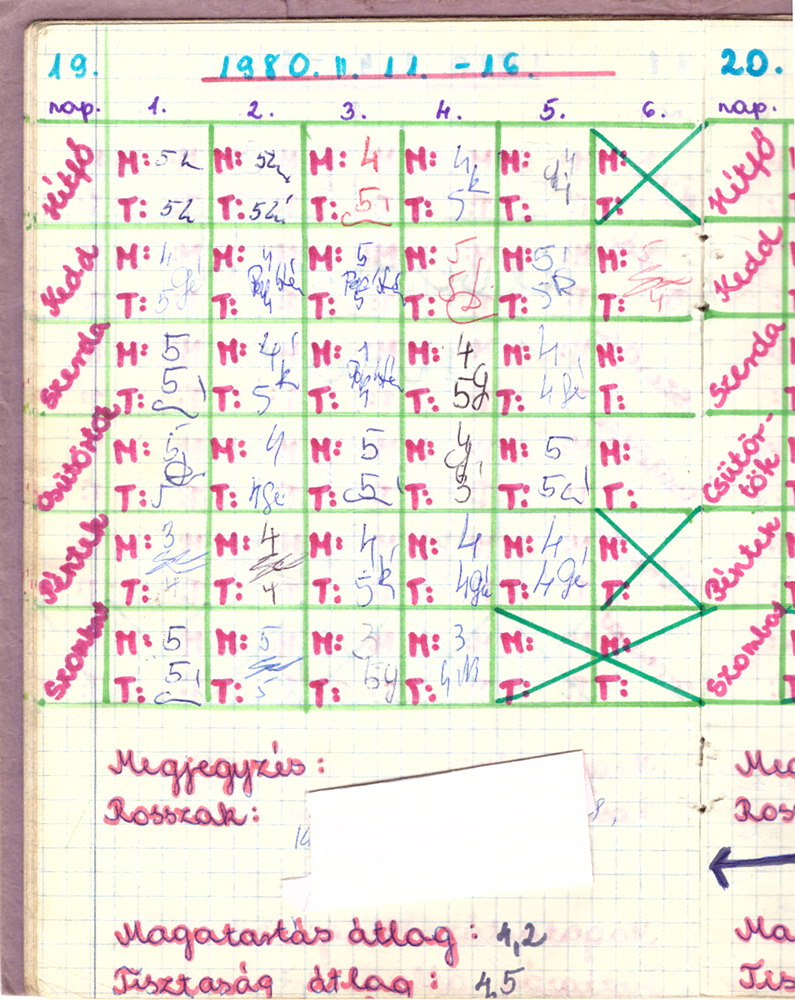 19. 1980. II. 11. -16. 20.
nap. 1. 2. 3. 4. 5. 6. nap.
Hétfő M: 5 M: 5 M: 4 M: 4 M: 4 M: Hétfő
T: 5 T: 5 T: 5 T: 5 T: T:
Kedd M: 4 M: 4 M: 5 M: 5 M: 5 M: 5 Kedd
T: 5 T: T: 5 T: 5 T: 5 T: 4
Szerda M: 5 M: 4 M: M: 4 M: 4 M: Szerda
T: 5 T: 5 T: T: 5 T: 4 gé T:
Csütörtök M: 5 M: 4 M: 5 M: 4 M: 5 M: Csütör-
T: 5 T: 4 gé T: 5 T: T: 5 T: tök
Péntek M: 3 M: 4 M: 4 M: 4 M: 4 M: Péntek
T: 4 T: 4 T: 5 T: 4 gé T: 4 gé T:
Szombat M: 5 M: 5 M: 3 M: 3 M: M: Szombat
T: 5 T: 5 T: 5 T: 4 T: T:
Megjegyzés:
Rosszak:
Magatartás átlag: 4,2
Tisztaság átlag: 4,5